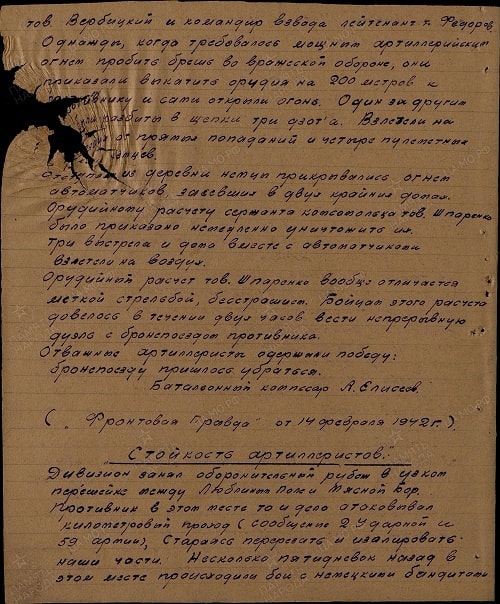 тов. Вербицкий и командир взвода лейтенант т. Федоров.
Однажды, когда требовалось мощным артиллерийским
огнем пробить брешь во вражеской обороне, они
приказали выкатить орудия на 200 метров к
противнику и сами открыли огонь. Один за другим
были разбиты в щепки три дзот'а. Взлетели на
от прямых попаданий и четыре пулеметных
из деревни немцы прикрывались огнем
автоматчиков, засевших в двух крайних домах.
Орудийному расчету сержанта комсомольца тов. Шпаренко
было приказано немедленно уничтожить их.
Три выстрела и дома вместе с автоматчиками
взлетели на воздух.
Орудийный расчет тов. Шпаренко вообще отличается
меткой стрельбой, бесстрашием. Бойцам этого расчета
довелось в течении двух часов вести непрерывную
дуэль с бронепоездом противника.
Отважные артиллеристы одержали победу:
бронепоезду пришлось убраться.
Баталионный комиссар А. Елисеев.
( „Фронтовая Правда" от 14 февраля 1942 г. ).
"Стойкость артиллеристов."
Дивизион занял оборонительный рубеж в узком
перешейке между Любиным Полем и Мясной Бор.
Противник в этом месте то и дело атаковывал
километровый проход ( сообщение 2 Ударной и
59 армии), стараясь перерезать и изолировать
наши части. Несколько пятидневок назад в
этом месте происходили бои с немецкими бандитами